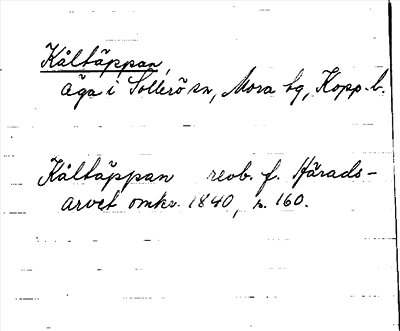 Kåltäppan,
äga i Sollerö sn, Mora tg, Kopp. l.
Kåltäppan reob. f. Härads-
arvet omkr. 1840, s. 160.